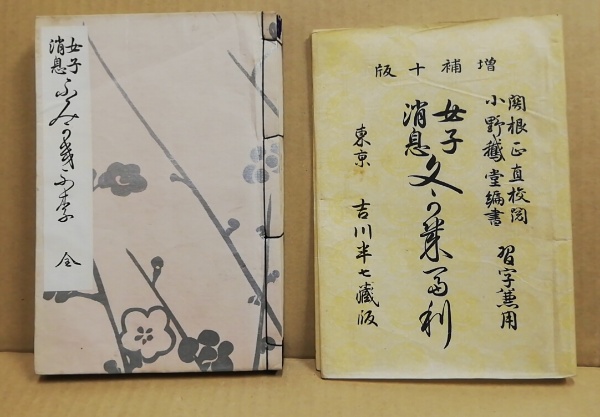 女子
消息
ふみ可幾不李 全
増補十版
関根正直校閲
小野鵞堂編書
習字兼用
女子
消息
文可幾冨利
東京 吉川半七蔵版